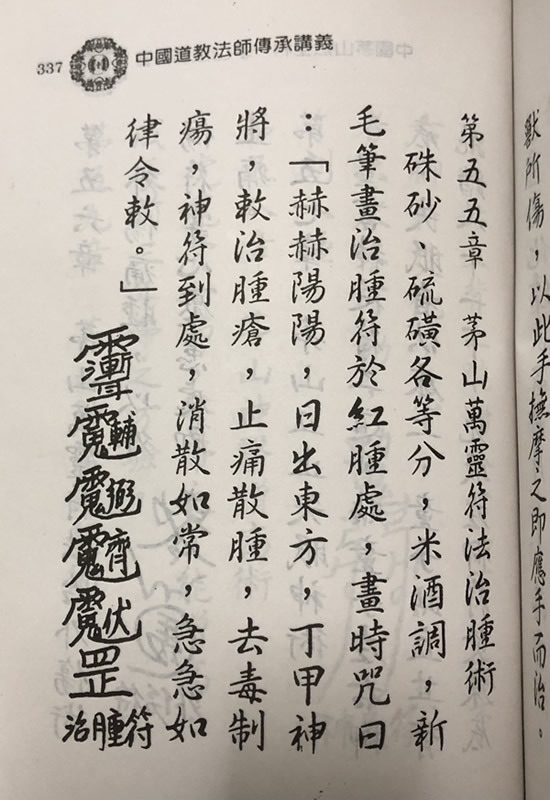 獸所傷，以此手撫摩之即應手而治。
337 中國道教法師傳承講義
第五五章　茅山萬靈符法治腫術
硃砂、硫磺各等分，米酒調，新
毛筆畫治腫符於紅腫處，畫時咒曰
：「赫赫陽陽，日出東方，丁甲神
將，敕治腫瘡，止痛散腫，去毒制
瘍，神符到處，消散如常，急急如
律令敕。」
治腫符